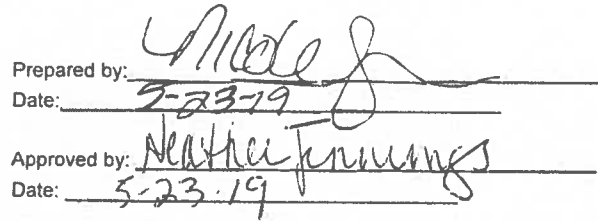 Prepared by: Nicole
Date: 5-23-19
Approved by: Heather Jennings
Date: 5-23-19